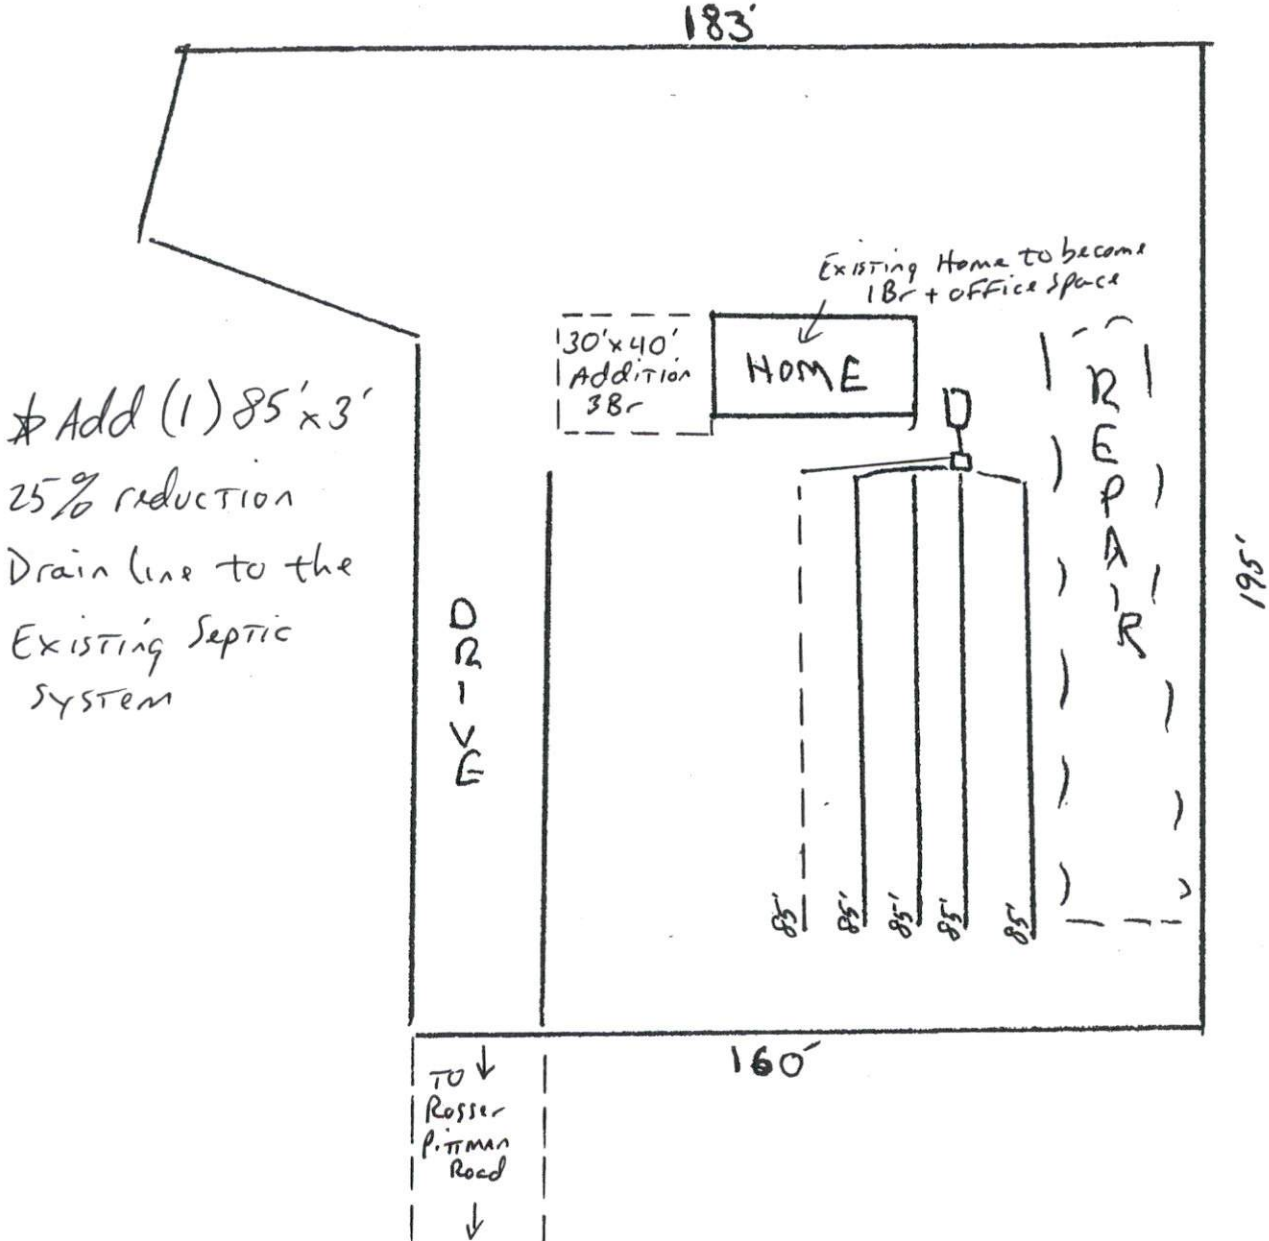 183'
Existing Home to become
1Br + office space
30'x40'
Addition
3Br
HOME
REPAIR
* Add (1) 85'x3'
25% reduction
Drain line to the
Existing Septic
System
195'
DRIVE
85'
85'
85'
85'
85'
160'
TO
Rosser
Pittman
Road